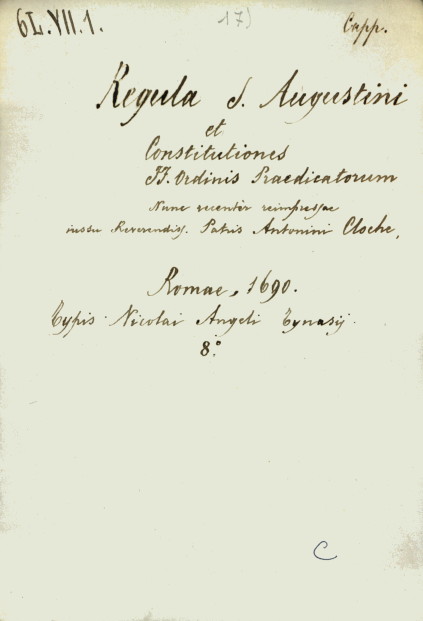 6L.VII.1. 17) Capp.
Regula S. Augustini
et
Constitutiones
FF. Ordinis Praedicatorum
Nunc recenter reimpressae
iussu Reverendiss. Patris Antonini Cloche,
Romae, 1690.
Typis Nicolai Angeli Tynasij.
8°.
C